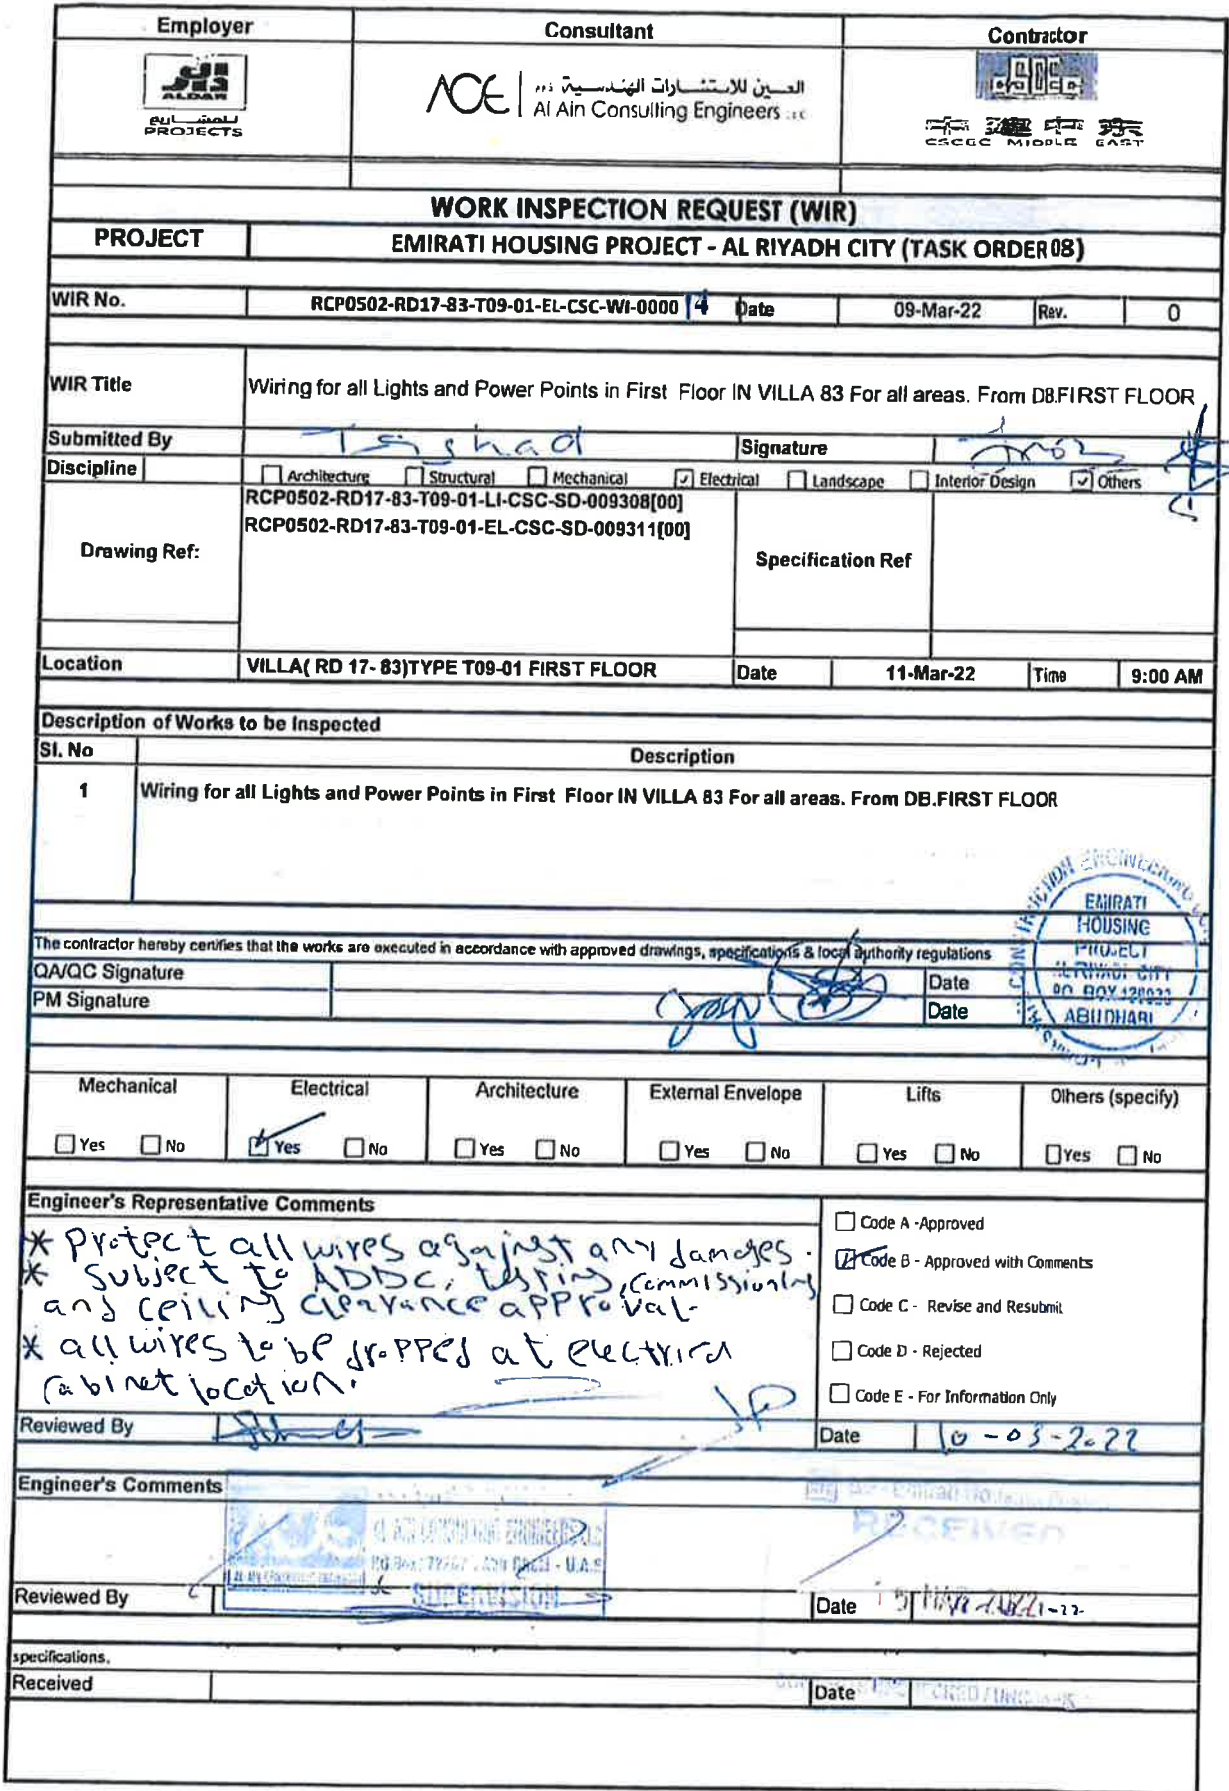 Employer Consultant Contractor
الدار
ALDAR
للمشاريع
PROJECTS
ACE العين للاستشارات الهندسية ذ.م.م
Al Ain Consulting Engineers LLC
CSCEC MIDDLE EAST
WORK INSPECTION REQUEST (WIR)
PROJECT EMIRATI HOUSING PROJECT - AL RIYADH CITY (TASK ORDER 08)
WIR No. RCP0502-RD17-83-T09-01-EL-CSC-WI-0000 14 Date 09-Mar-22 Rev. 0
WIR Title Wiring for all Lights and Power Points in First Floor IN VILLA 83 For all areas. From DB.FIRST FLOOR
Submitted By Signature
Discipline Architecture Structural Mechanical Electrical Landscape Interior Design Others
RCP0502-RD17-83-T09-01-LI-CSC-SD-009308[00]
RCP0502-RD17-83-T09-01-EL-CSC-SD-009311[00]
Drawing Ref: Specification Ref
Location VILLA( RD 17- 83)TYPE T09-01 FIRST FLOOR Date 11-Mar-22 Time 9:00 AM
Description of Works to be Inspected
Sl. No Description
1 Wiring for all Lights and Power Points in First Floor IN VILLA 83 For all areas. From DB.FIRST FLOOR
EMIRATI
HOUSING
PROJECT
ABU DHABI
The contractor hereby certifies that the works are executed in accordance with approved drawings, specifications & local authority regulations
QA/QC Signature Date
PM Signature Date
Mechanical Electrical Architecture External Envelope Lifts Others (specify)
Yes No Yes No Yes No Yes No Yes No Yes No
Engineer's Representative Comments
* Protect all wires against any damages.
* Subject to ADDC, testing, commissioning
and ceiling clearance approval.
* all wires to be dropped at electrical
cabinet location.
Code A -Approved
Code B - Approved with Comments
Code C - Revise and Resubmit
Code D - Rejected
Code E - For Information Only
Reviewed By Date 10-03-2022
Engineer's Comments
RECEIVED
SUPERVISION
Reviewed By Date
specifications.
Received Date